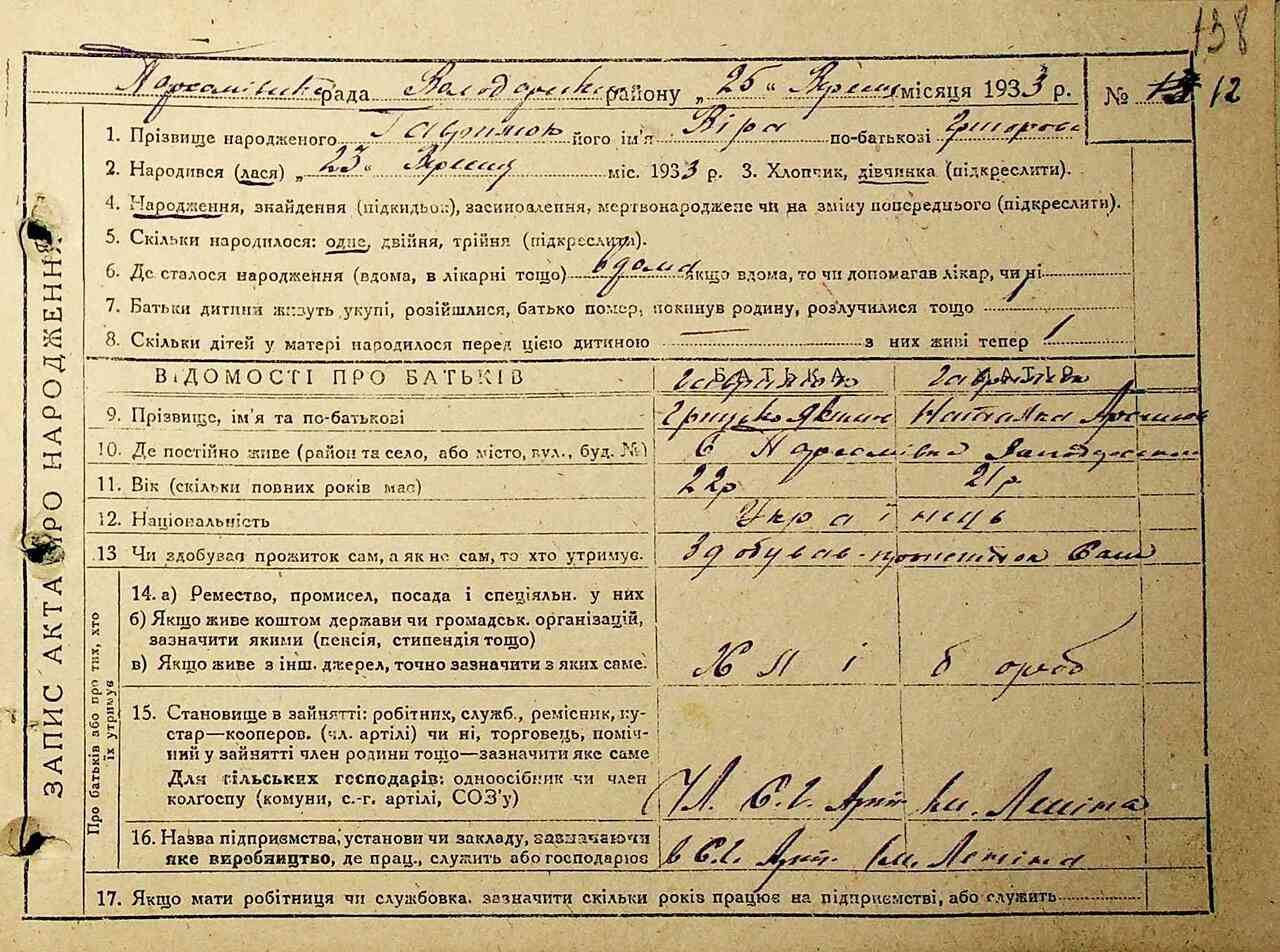 138
Пархомівська рада Володарського району „ 25 “ Вересня місяця 1933 р. № 12
1. Прізвище народженого Гаврилюк його ім'я Віра по-батькові
2. Народився (лася) „ 23 “ міс. 1933 р. 3. Хлопчик, дівчинка (підкреслити).
4. Народження, знайдення (підкидьок), засиновлення, мертвонароджене чи на зміну попереднього (підкреслити).
5. Скільки народилося: одне, двійня, трійня (підкреслити).
6. Де сталося народження (вдома, в лікарні тощо) вдома якщо вдома, то чи допомагав лікар, чи ні
7. Батьки дитини живуть укупі, розійшлися, батько помер, покинув родину, розлучилися тощо
8. Скільки дітей у матері народилося перед цією дитиною — з них живі тепер 1
ВІДОМОСТІ ПРО БАТЬКІВ БАТЬКА МАТІР
Гаврилюк Гаврилюк
9. Прізвище, ім'я та по-батькові Грицько Яким Наталка
10. Де постійно живе (район та село, або місто, вул., буд. №) с Пархомівка
11. Вік (скільки повних років має) 22р 21р
12. Національність Українець
13 Чи здобував прожиток сам, а як не сам, то хто утримує. Здобував прожиток Сам
14. а) Ремество, промисел, посада і спеціяльн. у них
б) Якщо живе коштом держави чи громадськ. організацій,
зазначити якими (пенсія, стипендія тощо)
в) Якщо живе з інш. джерел, точно зазначити з яких саме. Хлібороб
15. Становище в зайнятті: робітник, служб., ремісник, ку-
стар—кооперов. (чл. артілі) чи ні, торговець, поміч-
ний у зайнятті член родини тощо—зазначити яке саме
Для сільських господарів: одноосібник чи член
колгоспу (комуни, с.-г. артілі, СОЗ'у) Чл. С.Г. Арт. ім. Леніна
16. Назва підприємства, установи чи закладу, зазначаючи
яке виробництво, де прац., служить або господарює в С.Г. Арт. ім. Леніна
17. Якщо мати робітниця чи службовка, зазначити скільки років працює на підприємстві, або служить
ЗАПИС АКТА ПРО НАРОДЖЕННЯ
Про батьків або про тих, хто
їх утримує